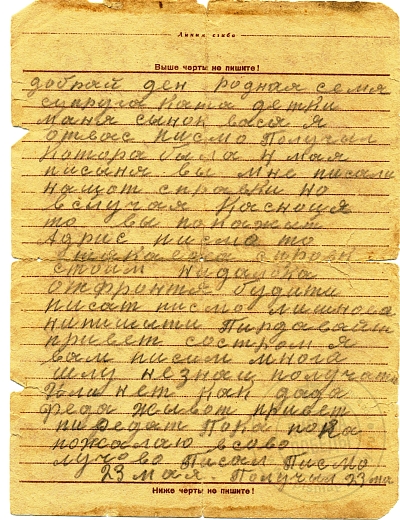 Линия сгиба
Выше черты не пишите!
добрай ден родная семя
супруга Ката детки
маня сынок вася я
отвас писмо Получил
Котора была 4 мая
писыня вы мне писали
нащот справки но
вслучая Касноця
то вы покажит
Адрис писма то
стоим нидалока
отфронта будити
писат писмо лишнога
нипишити Пирдавайт
привет состром я
вам писим многа
шлу незнаи получати
Или нет пан дада
феда жывот привет
пиредат Пора пока
пожалаю всово
лучово Писал Писмо
23 мая. Получил 23 ма
Ниже черты не пишите!